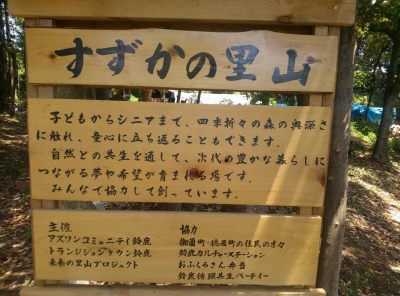 すずかの里山
子どもからシニアまで、四季折々の森の奥深さ
に触れ、童心に立ち返ることもできます。
自然との共生を通して、次代の豊かな暮らしに
つながる夢や希望が育まれる場です。
みんなで協力して創っています。
主催
アズワンコミュニティ鈴鹿
トランジションタウン鈴鹿
未来の里山プロジェクト
協力
御薗町・徳居町の住民の方々
鈴鹿カルチャーステーション
おふくろさん弁当
鈴鹿循環共生パーティー